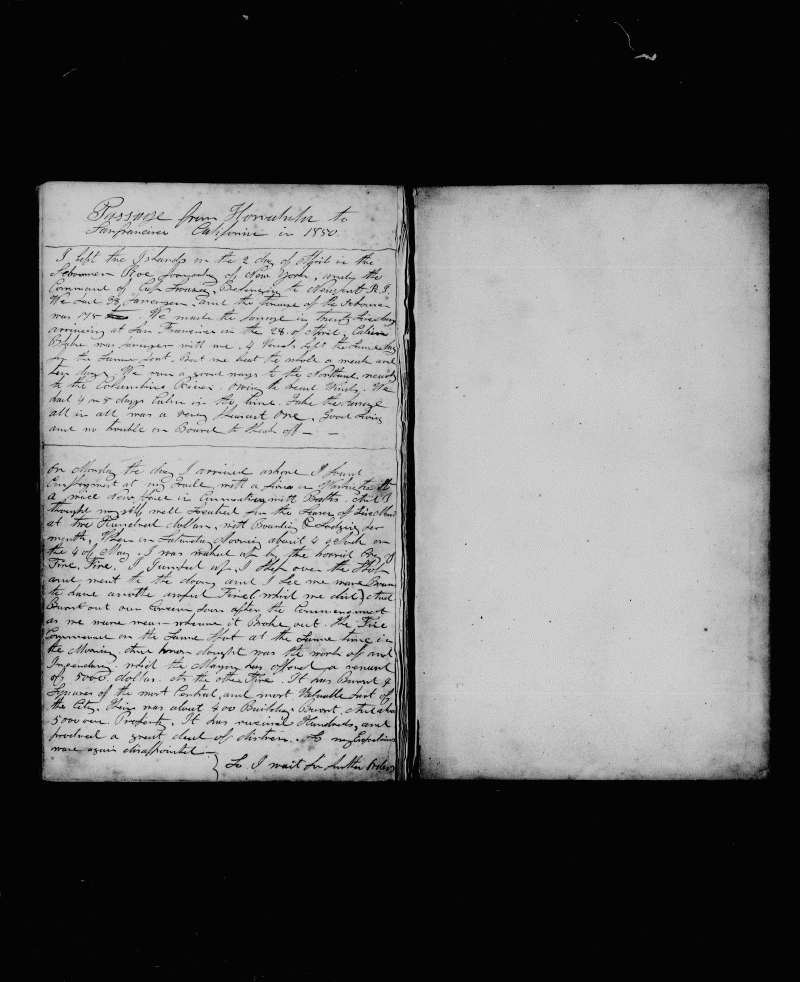 Passage from Honolulu to
Sanfrancisco California in 1850
I left the Islands on the 2 day of April in the
Schooner Roe of New York, under the
Command of Capt Belonging to Newport R.I.
We had 33 and the tonnage of the Schooner
was 175 We made the Passage in twenty five days
arriving at San Francisco on the 28 of April, Calvin
was with me. 4 Vessels left the Same day
for the Same Port. But we beat the whole a week and
ten days. We run a good ways to the Northard nearly
to the Columbia River. owing to head Winds. We
had 4 or 5 days Calm in the time. Take the Passage
all in all was a very Pleasant One. Good Living
and no trouble on Board to Speak off — —
On Monday the day I arrived ashore I found
Employment at my trade with a firm in Washington St
a nice new place in Connection with Baths. And I
thought myself well Situated for the Season of
at two Hundred dollars, with Boarding & Lodging per
month, When on Saturday Morning about 4 oClock on
the 4 of May, I was waked up by the horrid Cry of
Fire, Fire. I Jumped up, I Slept over the Shop
and went to the door, and I See we ware Bound
to have another awful Fire (which we did) And
Burnt out our Concern Soon after the Commencement
as we ware near whare it Broke out. the Fire
Commenced on the Same Spot at the Same time in
the Morning. thier no doubt was the work of an
Incendiary. which the Mayor has offered a reward
of 5000 dollars. As the other Fire. It has Burnt 4
Squares of the most Central, and most Valuable part of
the City, thier was about 400 Buildings Burnt. And about
5000000 Property, It has ruined Hundreds, and
produced a great deal of distress. So my Expectations
ware again disappointed —
So I wait for further Orders